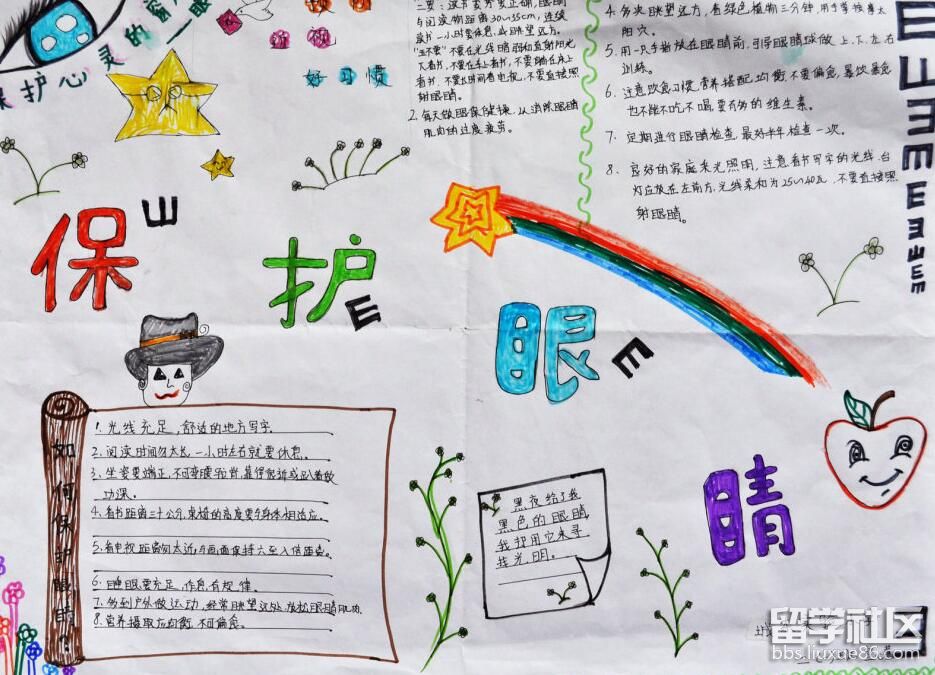 保护心灵的窗
眼
好习惯
与阅读物距离30~35cm,连续
读书一小时要休息,或眺望远方。
"三不要"不要在光线暗弱和直射阳光
下看书,不要在车上看书,不要躺在床上
看书,不要长时间看电视,不要直接照
射眼睛。
2. 每天做眼保健操,从消除眼睛
肌肉的过度疲劳。
4. 多次眺望远方,看绿色植物三分钟,用手掌按摩太
阳穴。
5. 用一只手指放在眼睛前,引导眼睛球做上、下、左、右
训练。
6. 注意饮食习惯,营养搭配均衡,不要偏食,暴饮暴食
也不能不吃不喝要有多的维生素。
7. 定期进行眼睛检查,最好半年检查一次。
8. 良好的家庭采光照明,注意看书写字的光线,台
灯应放在左前方,光线柔和为25~40瓦,不要直接照
射眼睛。
保护眼睛
如何保护眼睛?
1. 光线充足,舒适的地方写字.
2. 阅读时间勿太长,一小时左右就要休息。
3. 坐姿要端正,不可弯腰驼背,靠得很近或趴着做
功课。
4. 看书距离三十公分,桌椅的高度要与身体相适应。
5. 看电视距离勿太近,与画面保持六至八倍距离。
6. 睡眠要充足,作息有规律。
7. 多到户外做运动,经常眺望远处,放松眼睛肌肉.
8. 营养摄取应均衡,不可偏食。
黑夜给了我
黑色的眼睛
我却用它来寻
找光明。
留学社区
bbs.liuxue86.com